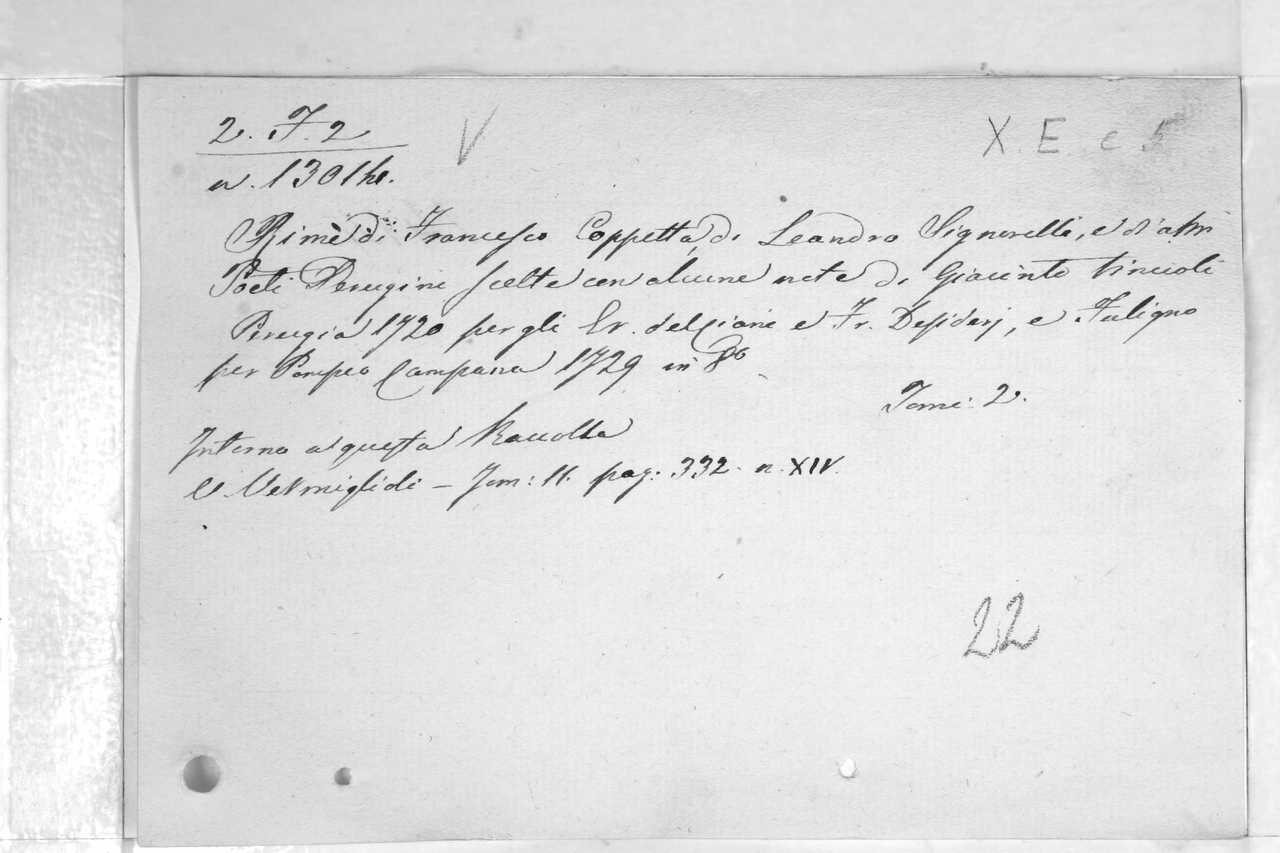 2. F. 2 V X. E c 5
n. 1301 his.
Rime di Francesco Coppetta, di Leandro Signorelli, e d'altri
Poeti Perugini scelte con alcune note di Giacinto Vincioli
Perugia 1720 per gli Er. del Ciani e Fr. Desiderj, e Fuligno
per Pompeo Campana 1729 in 8º
Tomi. 2.
Intorno a questa Raccolta
V. Vermiglioli – Tom: II. pag: 332. n. XIV.
22